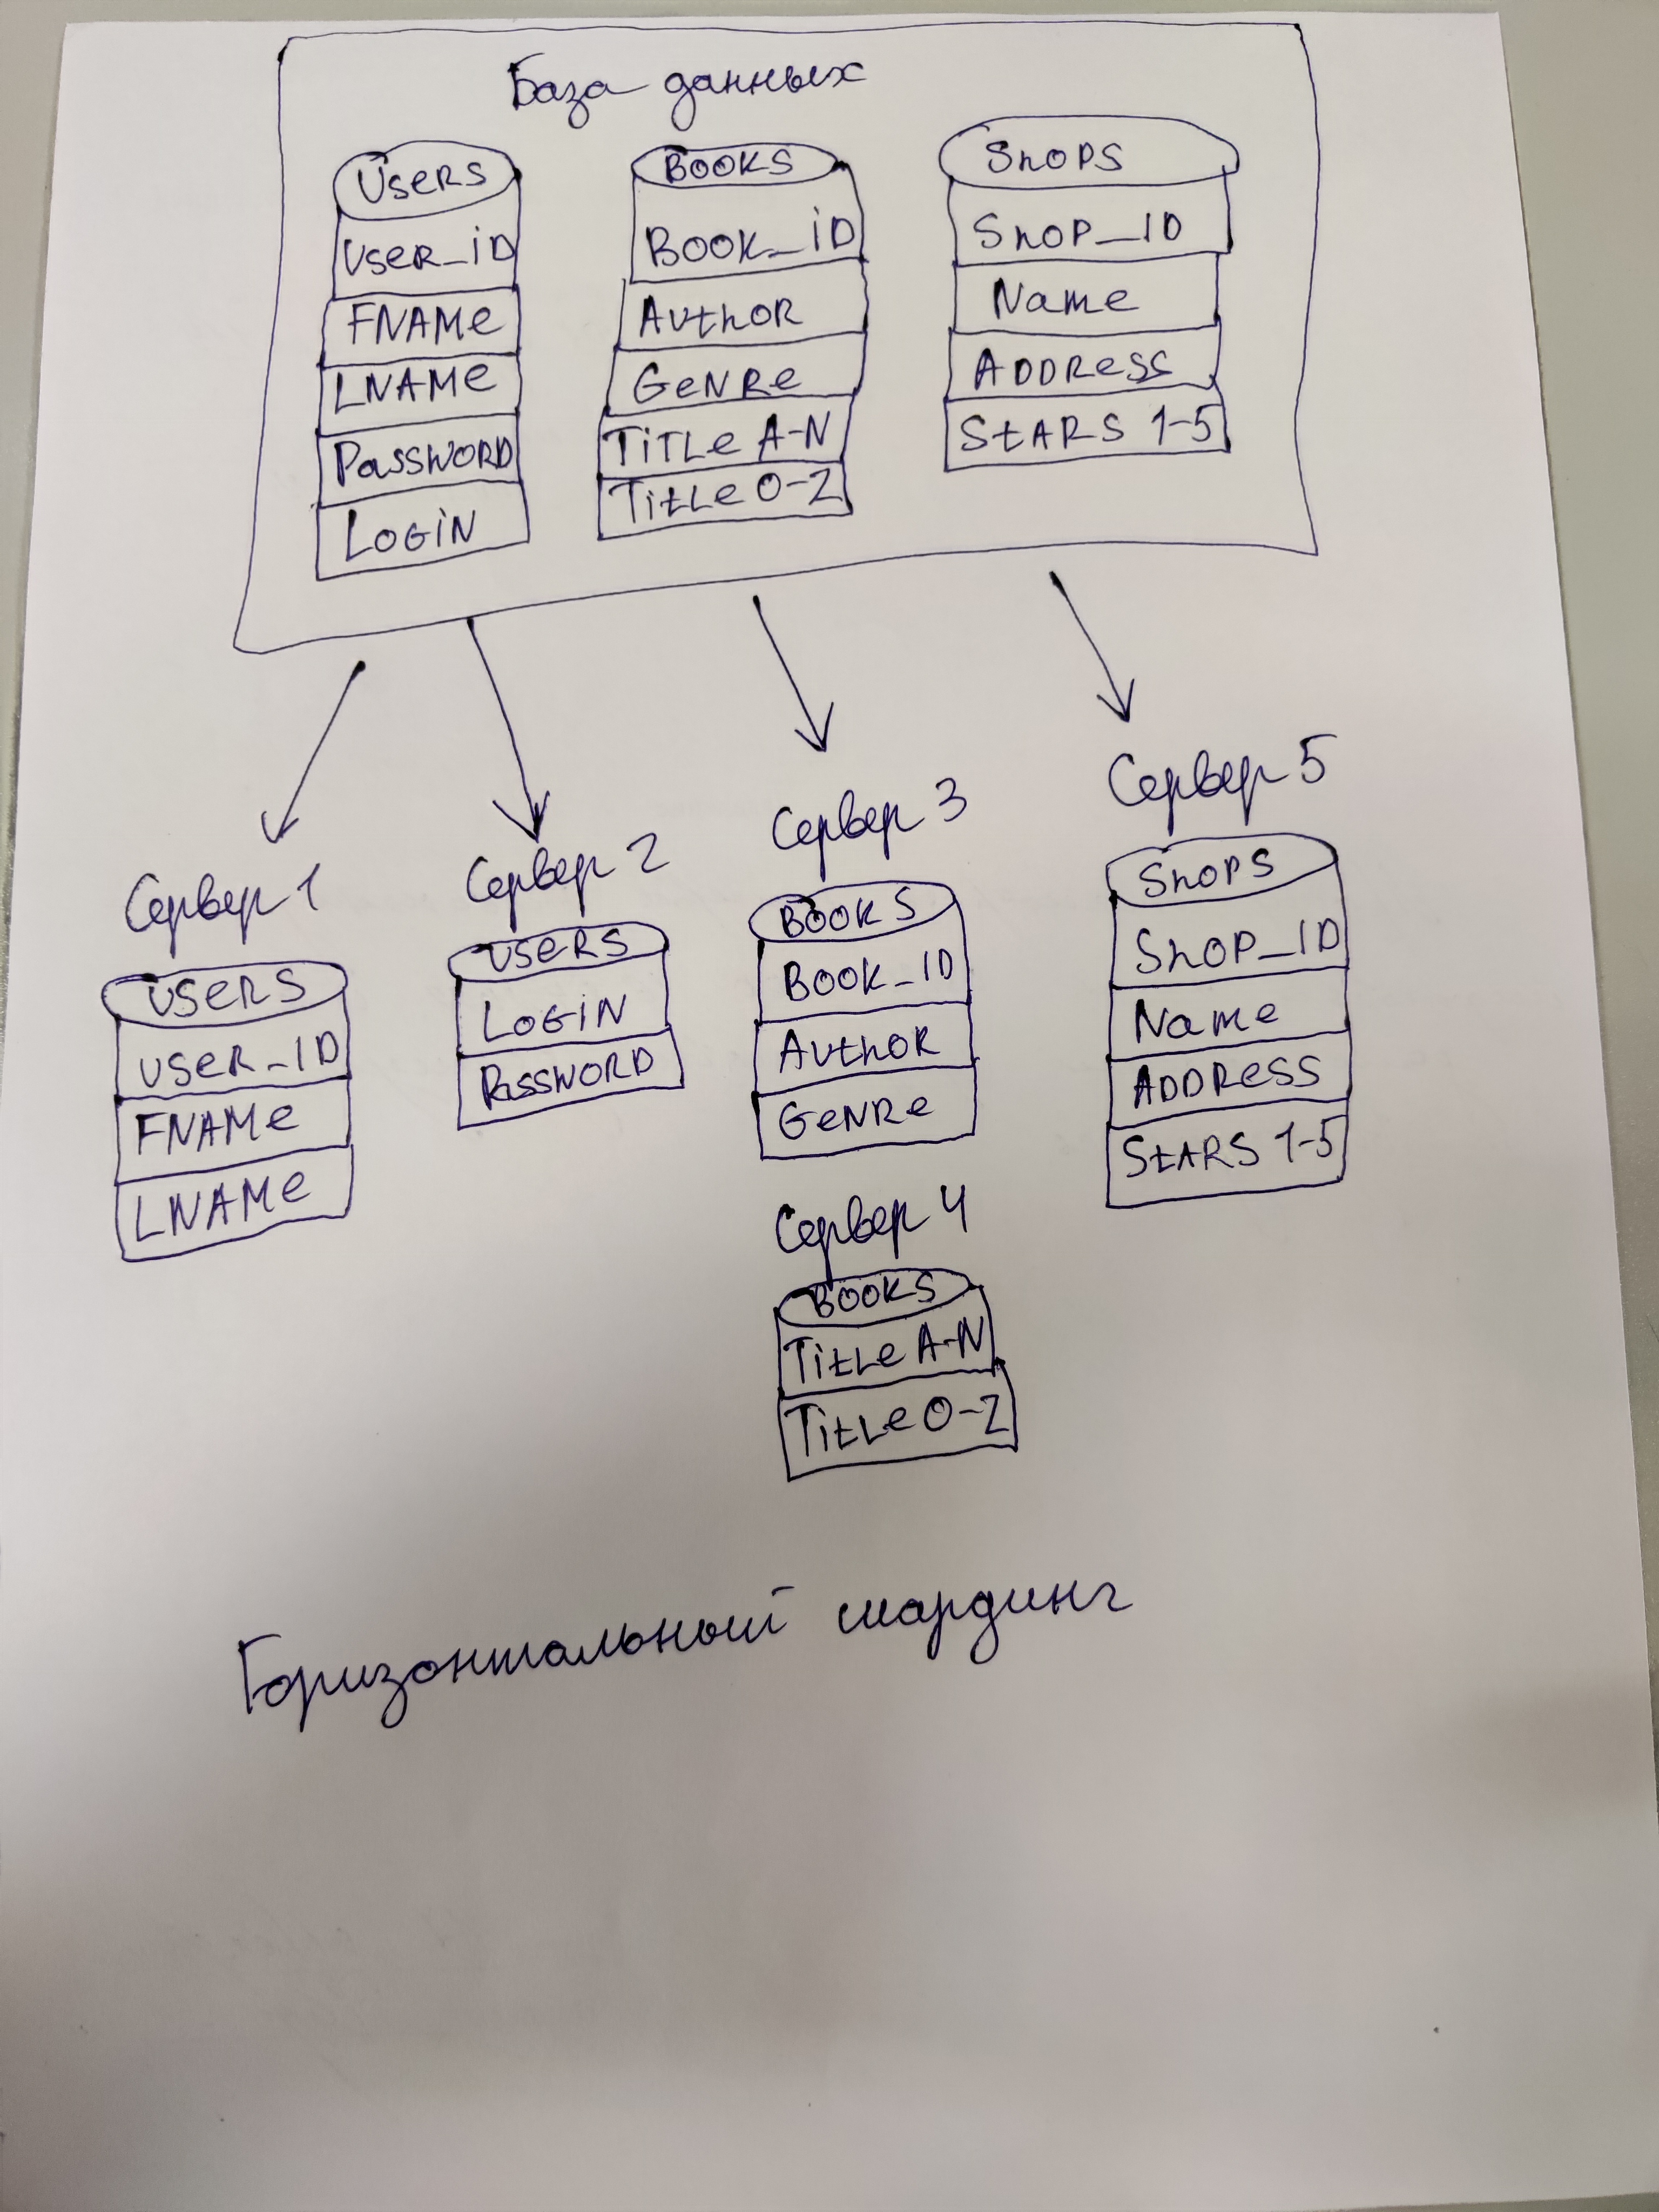 База данных
Users
User_iD
FNAMe
LNAMe
PassWORD
LOGiN
BOOKS
BOOK_iD
AuthOR
GeNRe
TiTLe A-N
TitLe O-Z
ShOPS
ShOP_ID
Name
ADDRess
StARS 1-5
Сервер 1
USeRS
USeR_ID
FNAMe
LNAMe
Сервер 2
USeRS
LOGiN
PassWORD
Сервер 3
BOOKS
BOOK_ID
AuthOR
GeNRe
Сервер 4
BOOKS
TitLe A-N
TitLe O-Z
Сервер 5
ShOPS
ShOP_ID
Name
ADDRess
StARS 1-5
Горизонтальный шардинг